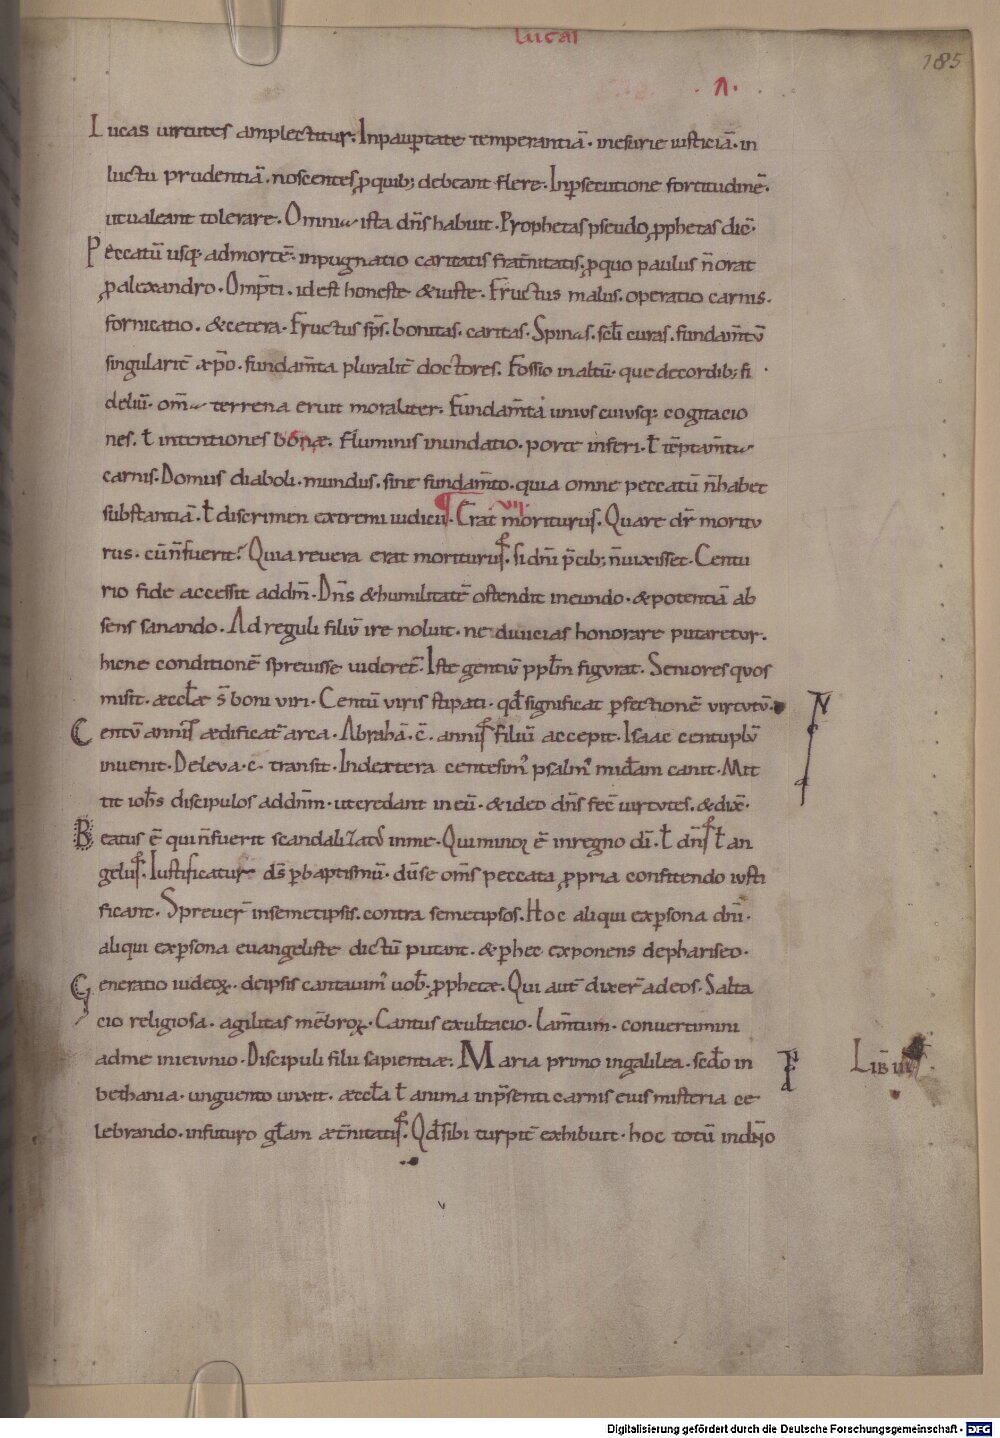 lucas
185
.Λ.
Lucas uirtutes amplectitur. Inpaup̱tate temperantiā. inesurie iusticiā. in
luctu prudentiā. noscentes ꝓquib; debeant flere. Inp̱secutione fortitudinē.
ut ualeant tolerare. Omnia ista dn̄s habuit. Prophetas pseudo ꝓphetas dic̄.
Peccatū usq; admortē. inpugnatio caritatis frat̄nitatis. ꝓquo paulus n̄ orat
ꝓalexandro. Omp̄ti. id est honeste & iuste. Fructus malus. operatio carnis.
fornicatio. & cetera. Fructus sp̄s. bonitas. caritas. Spinas. sc̄li curas. fundam̄tū
singularit̄ æ xp̄o. fundam̄ta pluralit̄ doctores. Fossio in altū. que decordib; fi
deliū. om̄ia terrena eruit moraliter. Fundam̄ta unius cuiusq; cogitacio
nes. ł intentiones bonæ. Fluminis inundatio. porte inferi. ł tēptam̄ta
carnis. Domus diaboli. mundus. sine fundam̄to. quia omne peccatū n̄ habet
substantiā. ł discrimen extremi iudicii. Erat moriturus. Quare dr̄ moritu
VII.
rus. cū n̄ fuerit? Quia reuera erat moriturus. si dn̄i p̄cib; n̄ uixisset. Centu
rio fide accessit ad dn̄m. Dn̄s & humilitatē ostendit ineundo. & potentiā ab
sens sanando. Ad reguli filiū ire noluit. ne diuicias honorare putaretur.
hicne conditionē spreuisse uideret̄. Iste gentiū ppl̄m figurat. Seniores quos
misit. æccl̄æ s̄ boni uiri. Centū uiris stipati. qđ significat p̱fectionē uirtutū.
Centū annis ædificat̄ arca. Abrahā .c̄. annis filiū accepit. Isaac centuplū
inuenit. De leua .c. transit. In dextera centesim' psalm' miđam canit. Mit
tit ioħs discipulos ad dn̄m. ut credant in eū. & ideo dn̄s fec̄ uirtutes. & dix̄.
Beatus ē qui n̄ fuerit scandalizatus in me. Qui minor ē in regno dī. ł dn̄s ł an
gelus. Iustificatur ds̄ p̱ baptismū. dū se om̄s peccata ꝓpria confitendo iusti
ficant. Spreuer̄ in semetipsis. contra semetipsos. Hoc aliqui exp̱sona dn̄i.
aliqui exp̱sona euangeliste dictū putant. & p̱ hec exponens de phariseo.
Generatio iudeoꝝ. deipsis cantauim' uob̄. ꝓphetæ. Qui aut̄ dixer̄ ad eos. Salta
cio religiosa. agilitas mēbroꝝ. Cantus exultacio. Lam̄tum. conuertimini
ad me in ieiunio. Discipuli filii sapientiæ. Maria primo in galilea. secđo in
LIB III
bethania. unguento unxit. æccl̄a ł anima in p̄senti carnis eius misteria ce
lebrando. in futuro gl̄am æt̄nitatis. Qđ sibi turpit̄ exhibuit. hoc totū in dn̄o
Digitalisierung gefördert durch die Deutsche Forschungsgemeinschaft - DFG